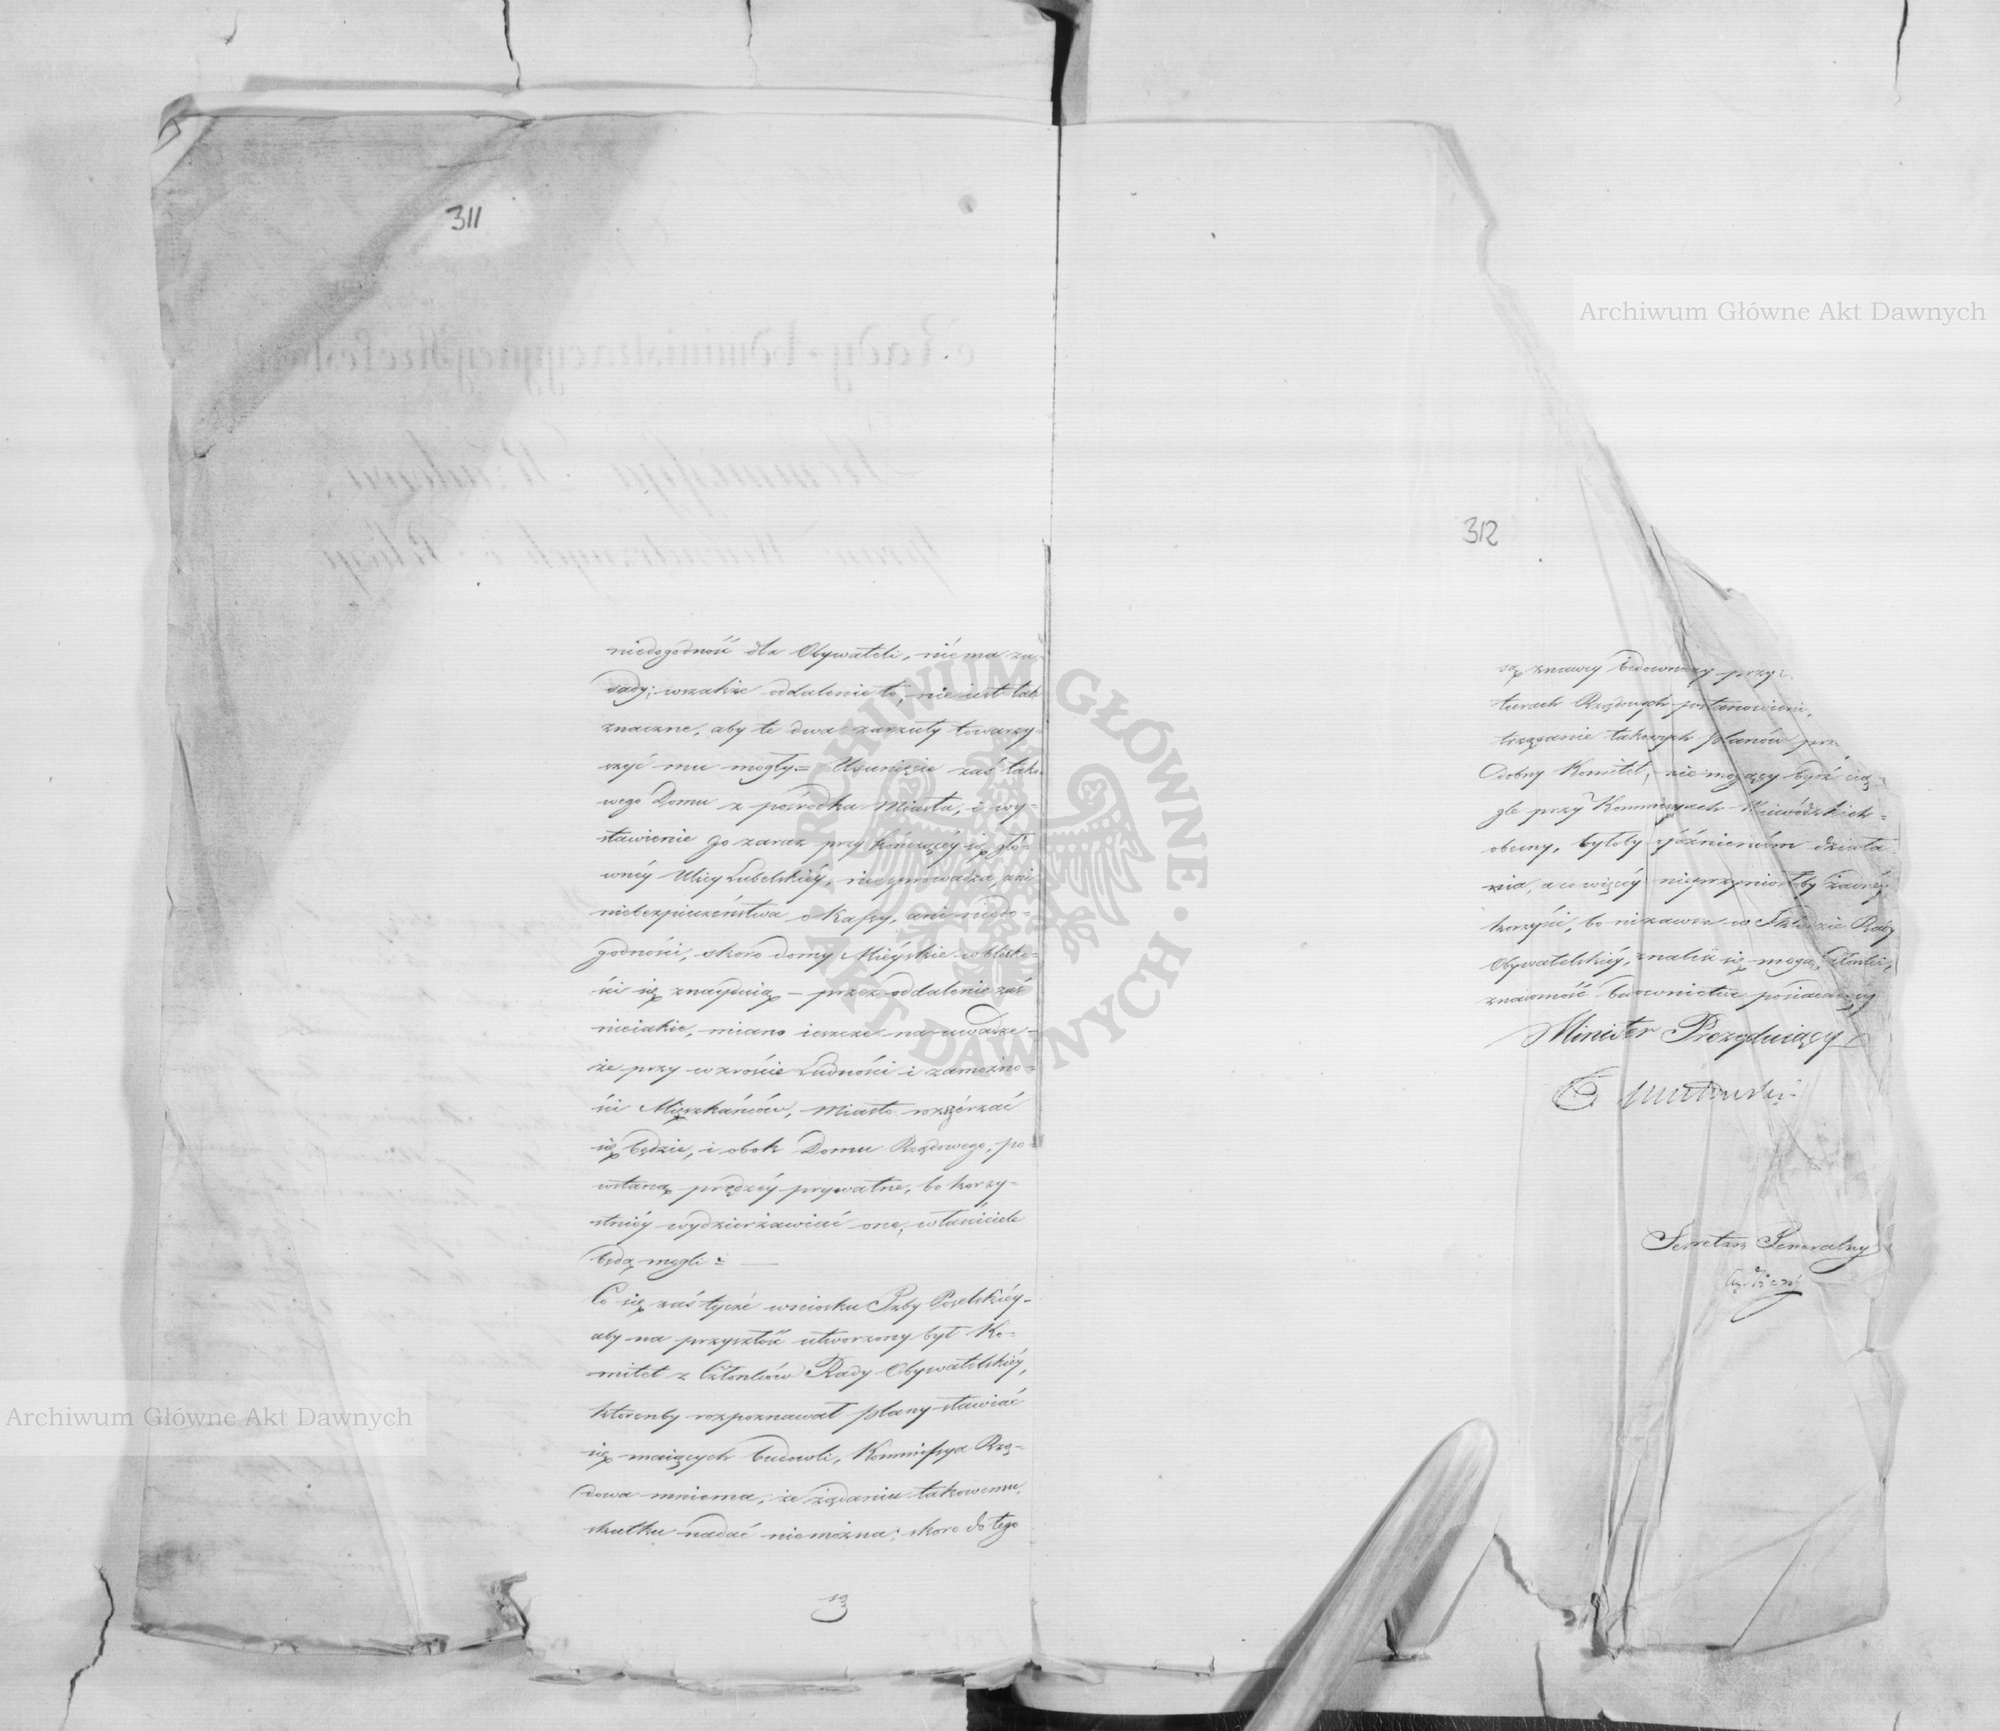 311
niedogodność dla Obywateli, niéma za-
sady; wszakże oddalenie to, nie iest tak
znaczne, aby te dwa zarzuty towarzy-
szyć mu mogły= Usunięcie zaś tako-
wego Domu z pośrodka Miasta, i wy-
stawienie go zaraz przy kończącéy się głó-
wnéy Ulicy Lubelskiéy, niesprowadza, ani
niebezpieczeństwa o Kassy, ani niedo-
godności, skoro domy Mieyskie w blisko-
ści się znayduią — przez oddalenie zaś
nieiakie, miano ieszcze na uwadze
że przy wzroście Ludności i zamożno-
ści Mieszkańców, Miasto rozszérzać
się będzie, i obok Domu Rządowego, po-
wstaną prędzéy prywatne, bo korzy-
stniéy wydzierżawiać one, właściciele
będą mogli= —
Co się zaś tycze wniosku Izby Poselskiéy
aby na przyszłość utworzony był Ko-
mitet z Członków Rady Obywatelskiéy,
którenby rozpoznawał plany stawiać
się maiących budowli, Kommissya Rzą-
dowa mniema, że żądaniu takowemu,
skutku nadać niemożna; skoro do tego
są
312
są znawcy budowniczy przy
turach Rządowych postanowieni,
trząsanie takowych planów prz
Osobny Komitet, nie mogący bydź cią-
gle przy Kommissyach Woiewódzkich
obecny, byłoby opóźnieniem działa
nia, a co więcéy nieprzyniosłoby żadnéy
korzyści, bo niezawsze w Składzie Rady
Obywatelskiéy, znaleść się mogą Członki,
znaiomość budownictwa posiadaiący
Minister Prezyduiący
Sekretarz Generalny
ARCHIWUM GŁÓWNE · AKT DAWNYCH ·
Archiwum Główne Akt Dawnych
Archiwum Główne Akt Dawnych